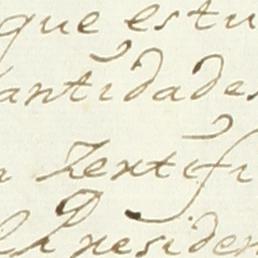 que estu
antidades
n Zertifi
el Presiden